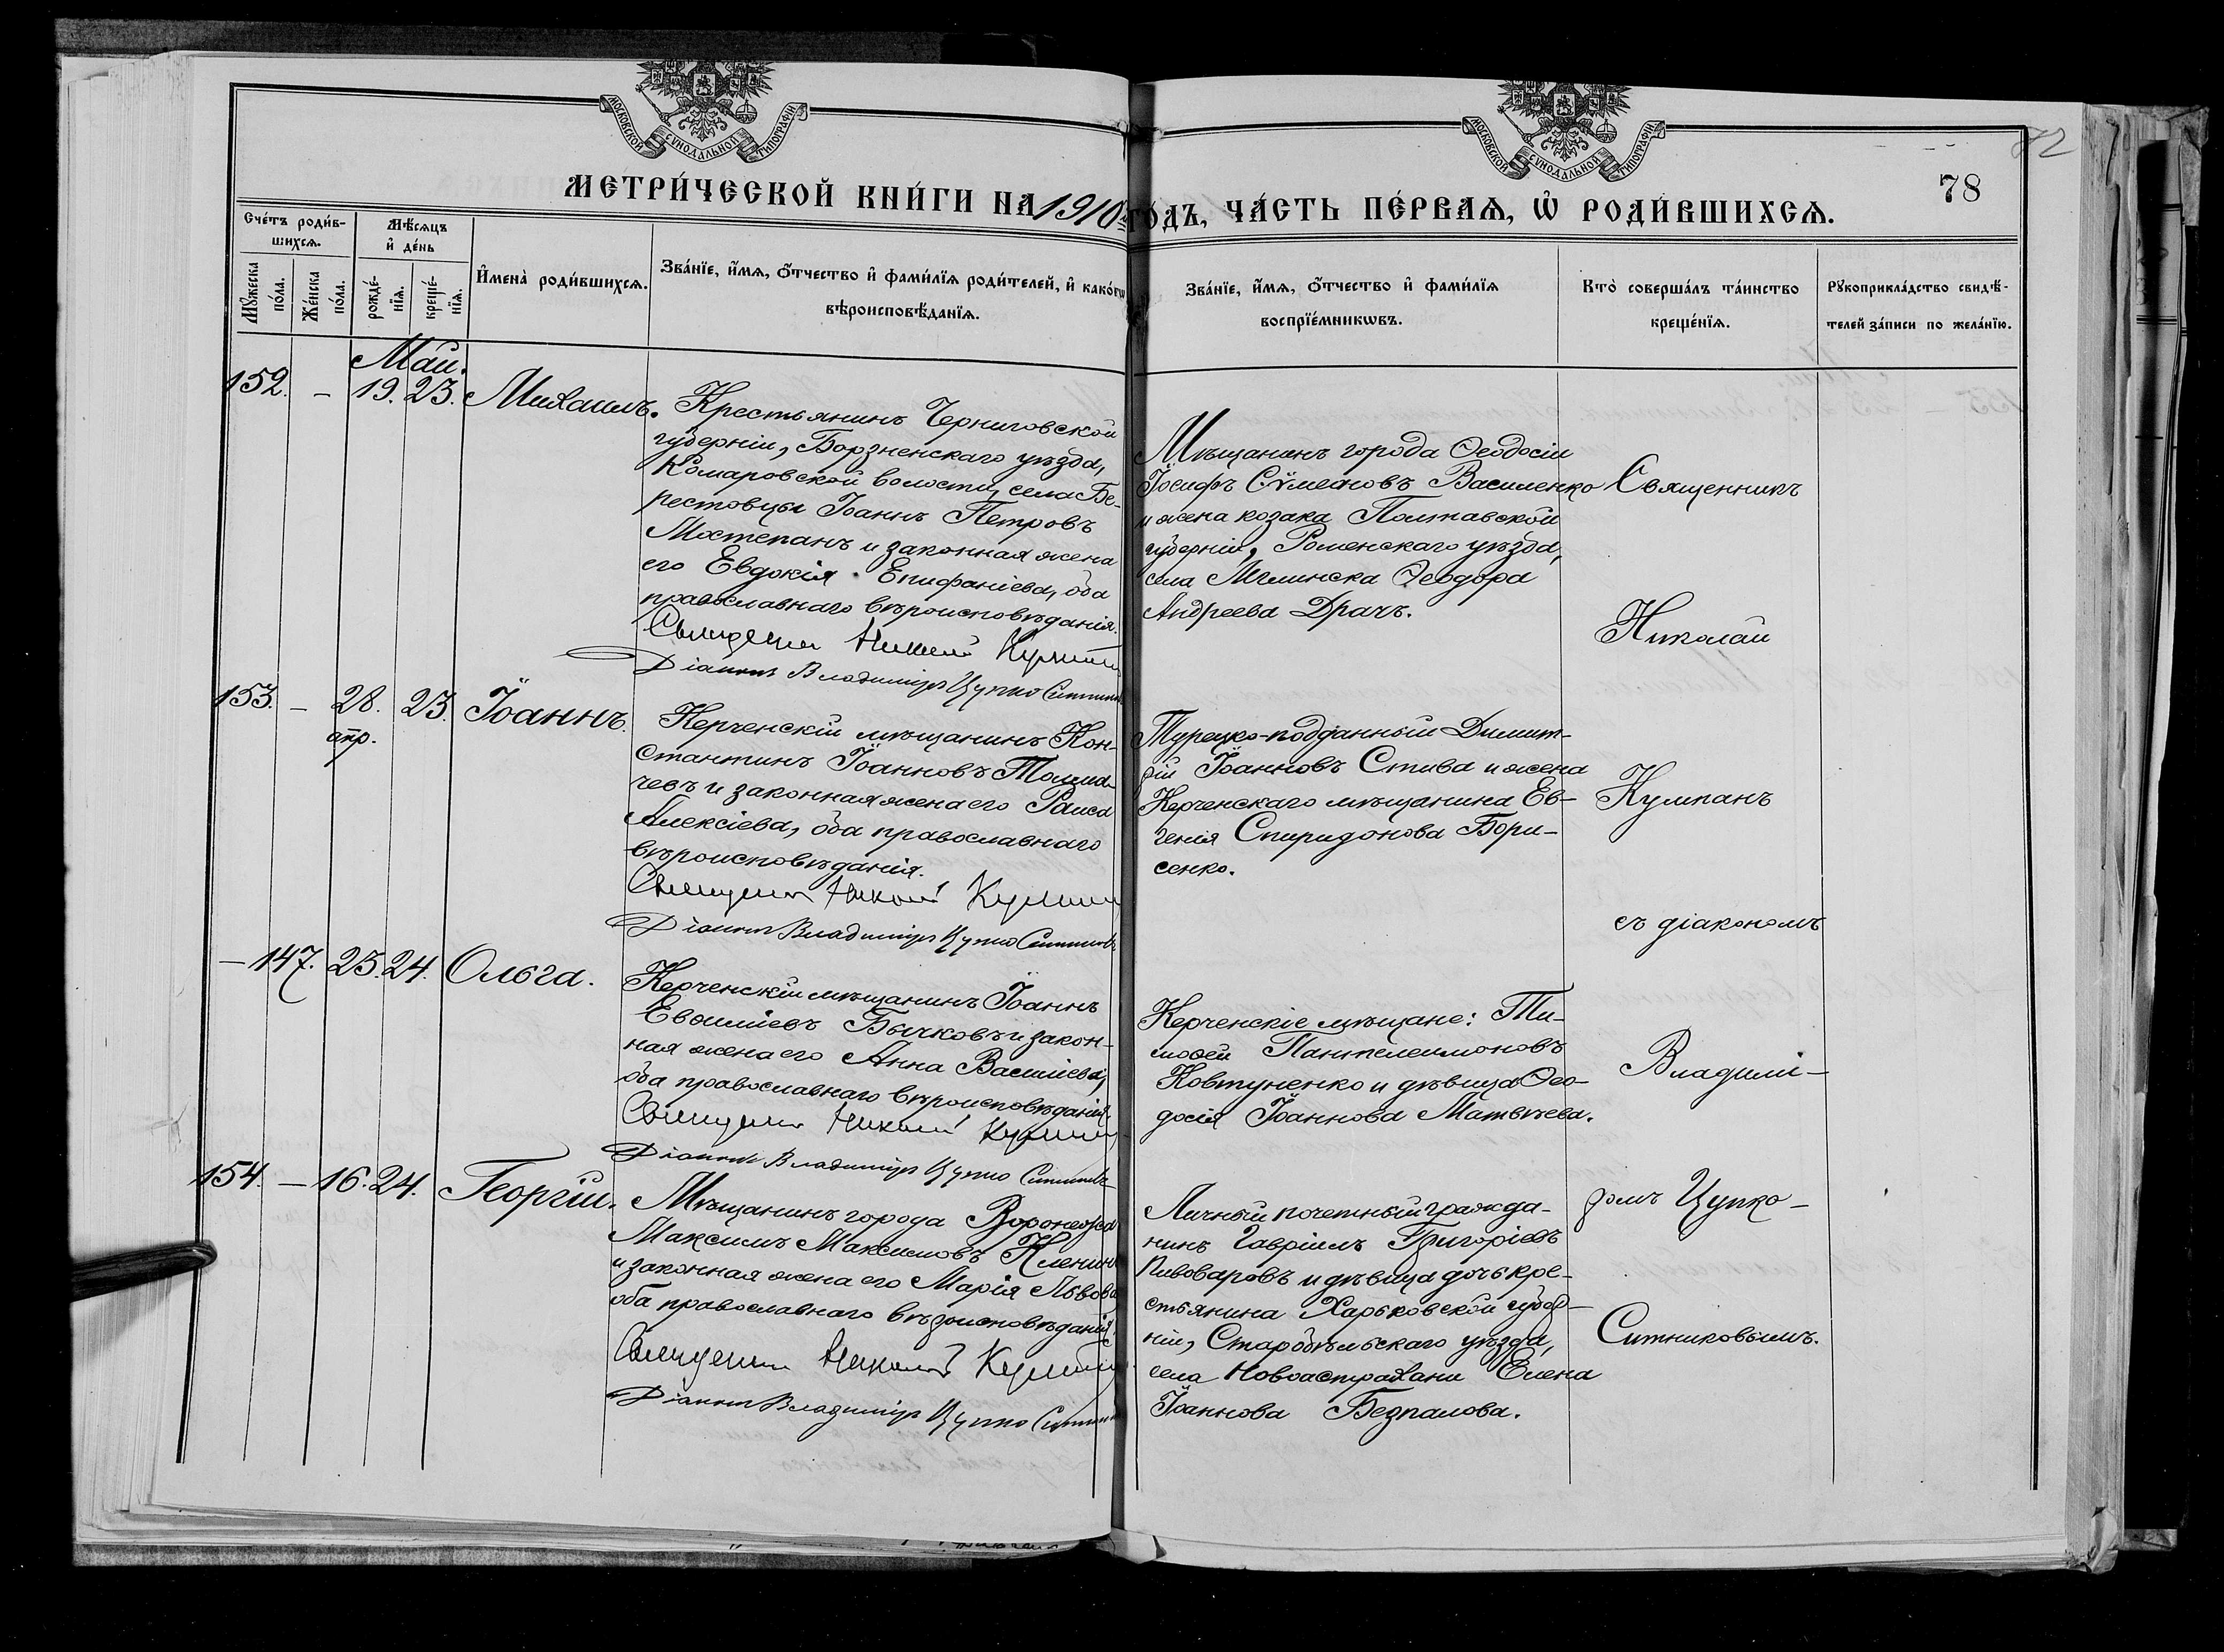 МОСКОВСКОЙ СУНОДАЛЬНОЙ ТИПОГРАФІИ
МОСКОВСКОЙ СУНОДАЛЬНОЙ ТИПОГРАФІИ
78
МЕТРИ́ЧЕСКОЙ КНИ́ГИ НА 1910 ГО́ДЪ, ЧА́СТЬ ПЕ́РВАѦ, Ѡ҆ РОДИ́ВШИХСѦ.
Сче́тъ роди́в-
шихсѧ.
Мꙋ́жеска по́ла.
Же́нска по́ла.
Мѣ́сѧцъ
и҆ де́нь
рожде́-
нїѧ.
креще́-
нїѧ.
И҆мена̀ роди́вшихсѧ.
Зва́нїе, и҆́мѧ, ѻ҆́тчество и҆ фами́лїѧ роди́телей, и҆ како́гѡ
вѣроисповѣ́данїѧ.
Зва́нїе, и҆́мѧ, ѻ҆́тчество и҆ фами́лїѧ
воспрїе́мникѡвъ.
Кто̀ соверша́лъ та́инство
креще́нїѧ.
Рꙋкоприкла́дство свидѣ́-
телей за́писи по жела́нїю.
Май.
152. – 19. 23. Михаилъ.
Крестьянинъ Черниговской
губерніи, Борзненскаго уѣзда,
Комаровской волости, села Бе-
рестовцы Іоаннъ Петровъ
Мостепанъ и законная жена
его Евдокія Епифаніева, оба
православнаго вѣроисповѣданія.
Священникъ Николай Кумпанъ
Діаконъ Владиміръ Цупко Ситник
Мѣщанинъ города Ѳеодосіи
Іосифъ Сѵмеоновъ Василенко
и жена козака Полтавской
губерніи, Роменскаго уѣзда,
села Мглинска Ѳеодора
Андреева Драчъ.
153. – 28. 23. Іоаннъ.
апр.
Керченскій мѣщанинъ Кон-
стантинъ Іоанновъ Толма-
чевъ и законная жена его Раиса
Алексіева, оба православнаго
вѣроисповѣданія.
Священникъ Николай Кумпанъ
Діаконъ Владиміръ Цупко Ситниковъ
Турецко-подданный Димит-
рій Іоанновъ Стива и жена
Керченскаго мѣщанина Ев-
генія Спиридонова Бори-
сенко.
– 147. 23. 24. Ольга.
Керченскій мѣщанинъ Іоаннъ
Бычковъ и закон-
ная жена его Анна Василіева,
оба православнаго вѣроисповѣданія.
Священникъ Николай Кумпанъ
Діаконъ Владиміръ Цупко Ситниковъ
Керченскіе мѣщане: Ти-
моѳей Пантелеимоновъ
Ковтуненко и дѣвица Ѳео-
досія Іоаннова Матвѣева.
154. – 16. 24. Георгій.
Мѣщанинъ города Воронежа
Максимъ Максимовъ
и законная жена его Марія Львова
оба православнаго вѣроисповѣданія.
Священникъ Николай Кумпанъ
Діаконъ Владиміръ Цупко Ситник
Личный почетный гражда-
нинъ Гавріилъ Григоріевъ
Пивоваровъ и дѣвица дочь кре-
стьянина Харьковской губер-
ніи, Старобѣльскаго уѣзда,
села Новоастрахани Елена
Іоаннова Безпалова.
Священникъ
Николай
Кумпанъ
съ діакономъ
Владимі-
ромъ Цупко-
Ситниковымъ.